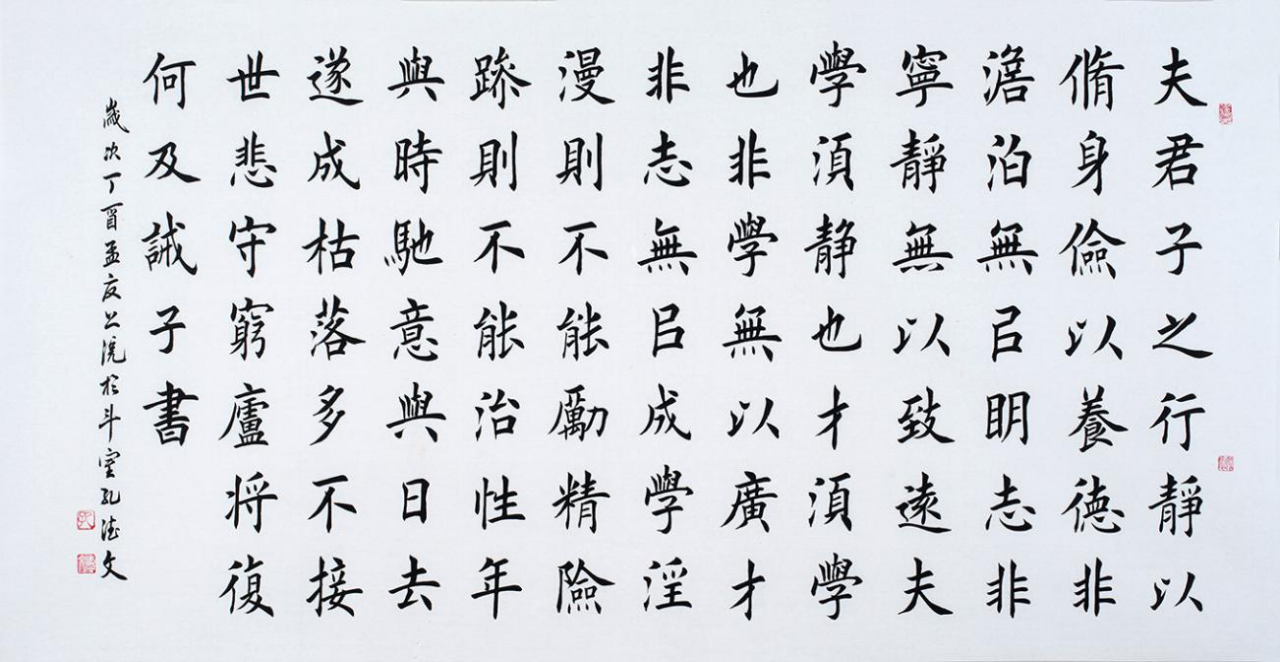 夫君子之行靜以
脩身儉以養德非
澹泊無㠯眀志非
寧靜無以致遠夫
學須静也才須學
也非學無以廣才
非志無㠯成學淫
漫則不能勵精險
躁則不能治性年
與時馳意與日去
遂成枯落多不接
世悲守窮廬将復
何及誡子書
歲次丁酉孟夏上浣於斗室孔德文